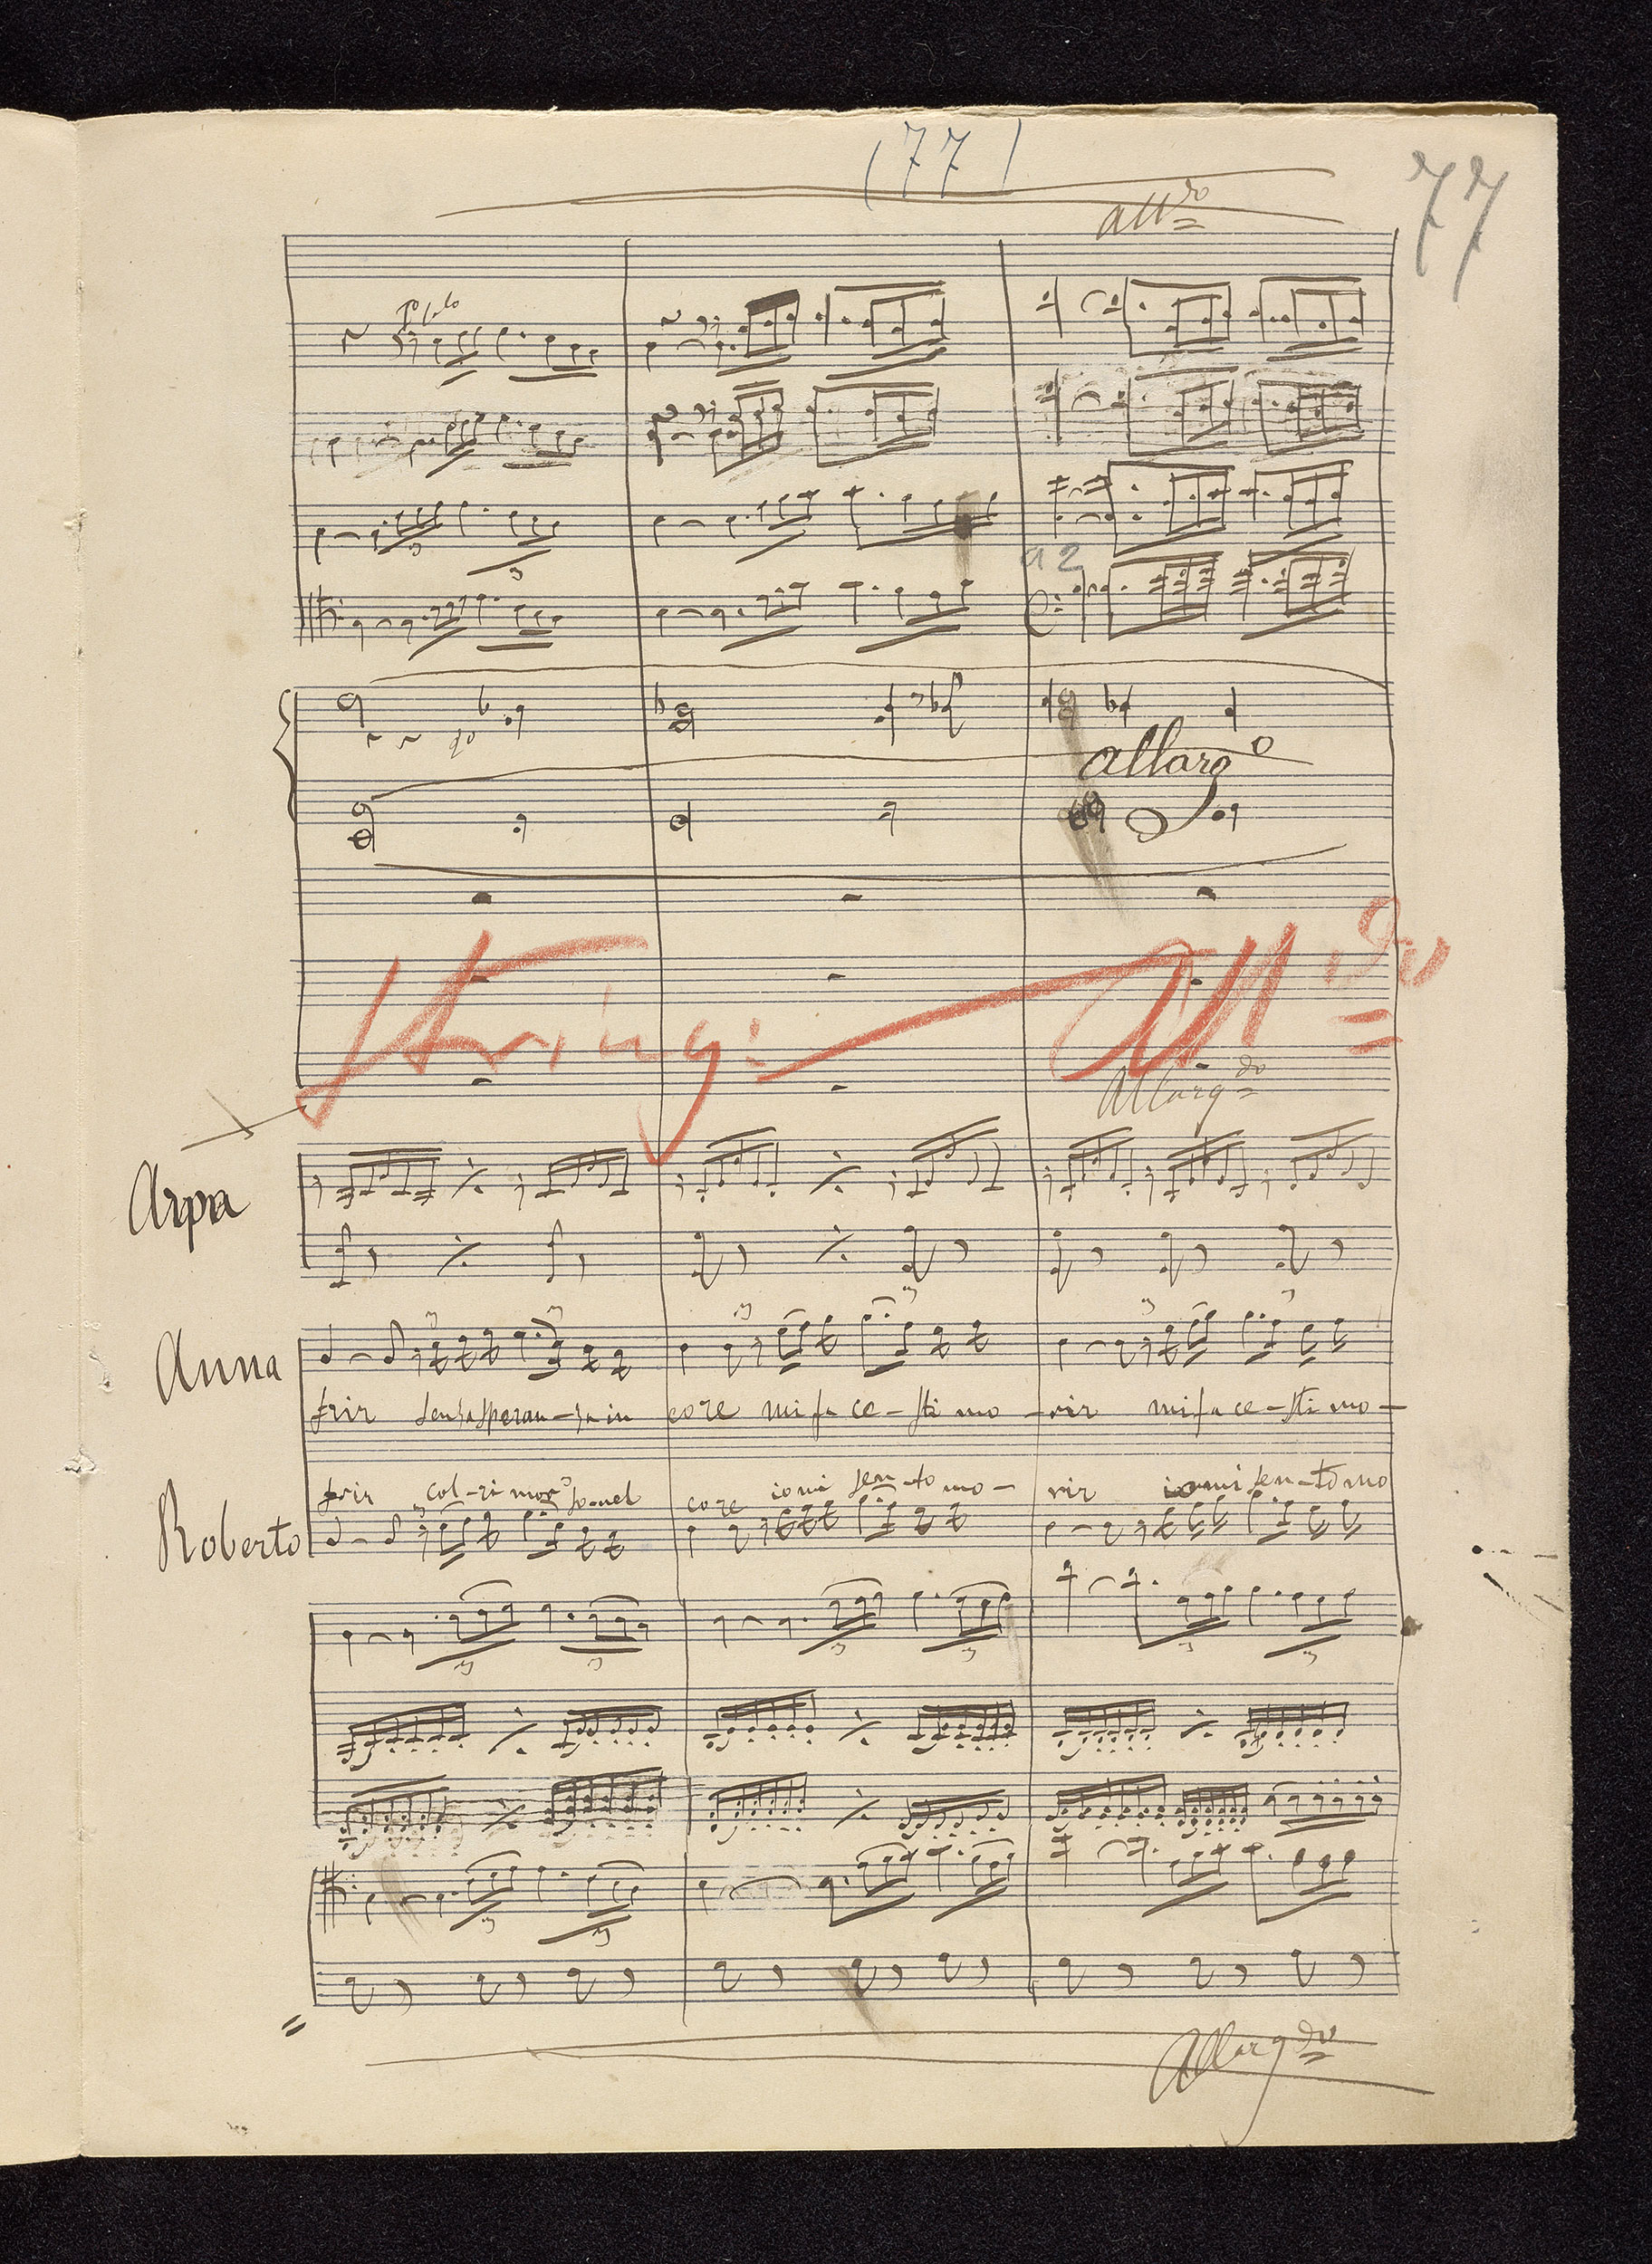 (77)
77
all.do
a 2
allarg.o
string: all.do
Allarg.do
Arpa
Anna
frir senza speran-za in core mi fa ce-sti mo-rir mi fa ce-sti mo-
frir col-ri mor so nel core io mi sen-to mo-rir io mi sen-to mo
Roberto
Allarg.do